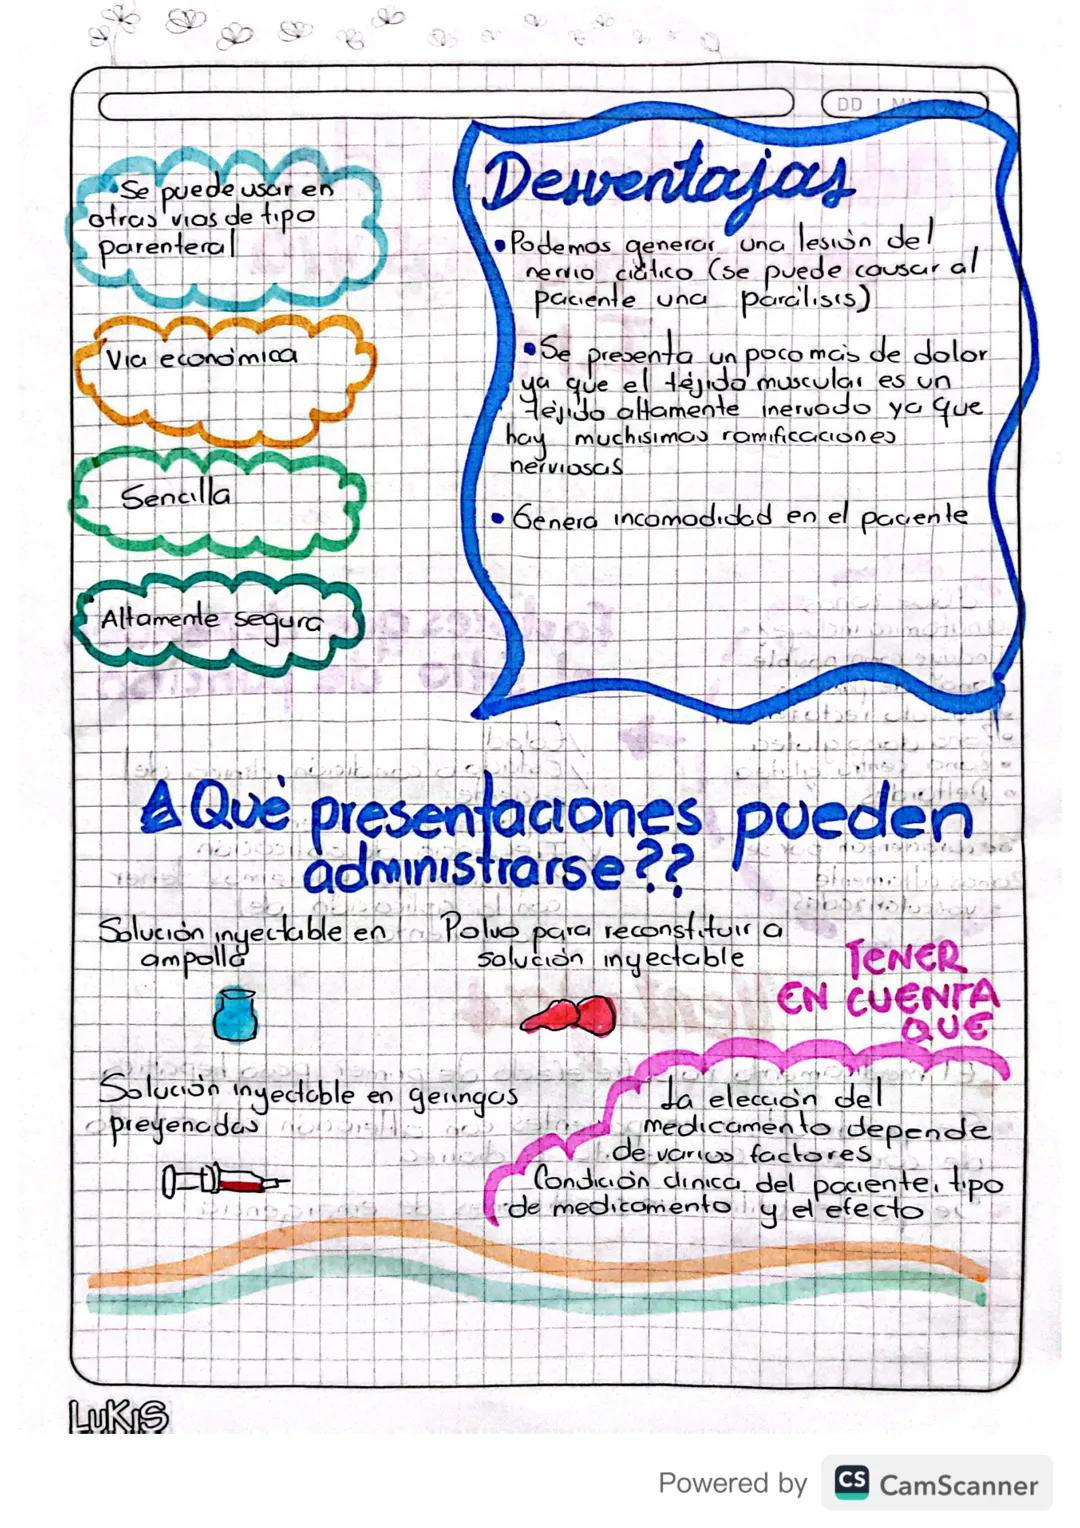 DD
• Se puede usar en
otras vías de tipo
parenteral
Vía económica
Sencilla
Altamente segura
Desventajas
• Podemos generar una lesión del
nervio ciático (se puede causar al
paciente una parálisis)
• Se presenta un poco más de dolor
ya que el tejido muscular es un
tejido altamente inervado ya que
hay muchísimas ramificaciones
nerviosas
• Genera incomodidad en el paciente
Qué presentaciones pueden
administrarse??
Solución inyectable en
ampolla
Polvo para reconstituir a
solución inyectable
TENER
EN CUENTA
QUE
Solución inyectable en geringas
preyenadas
La elección del
medicamento depende
de varios factores
Condición clínica del paciente, tipo
de medicamento y el efecto
LUKIS
Powered by CS CamScanner